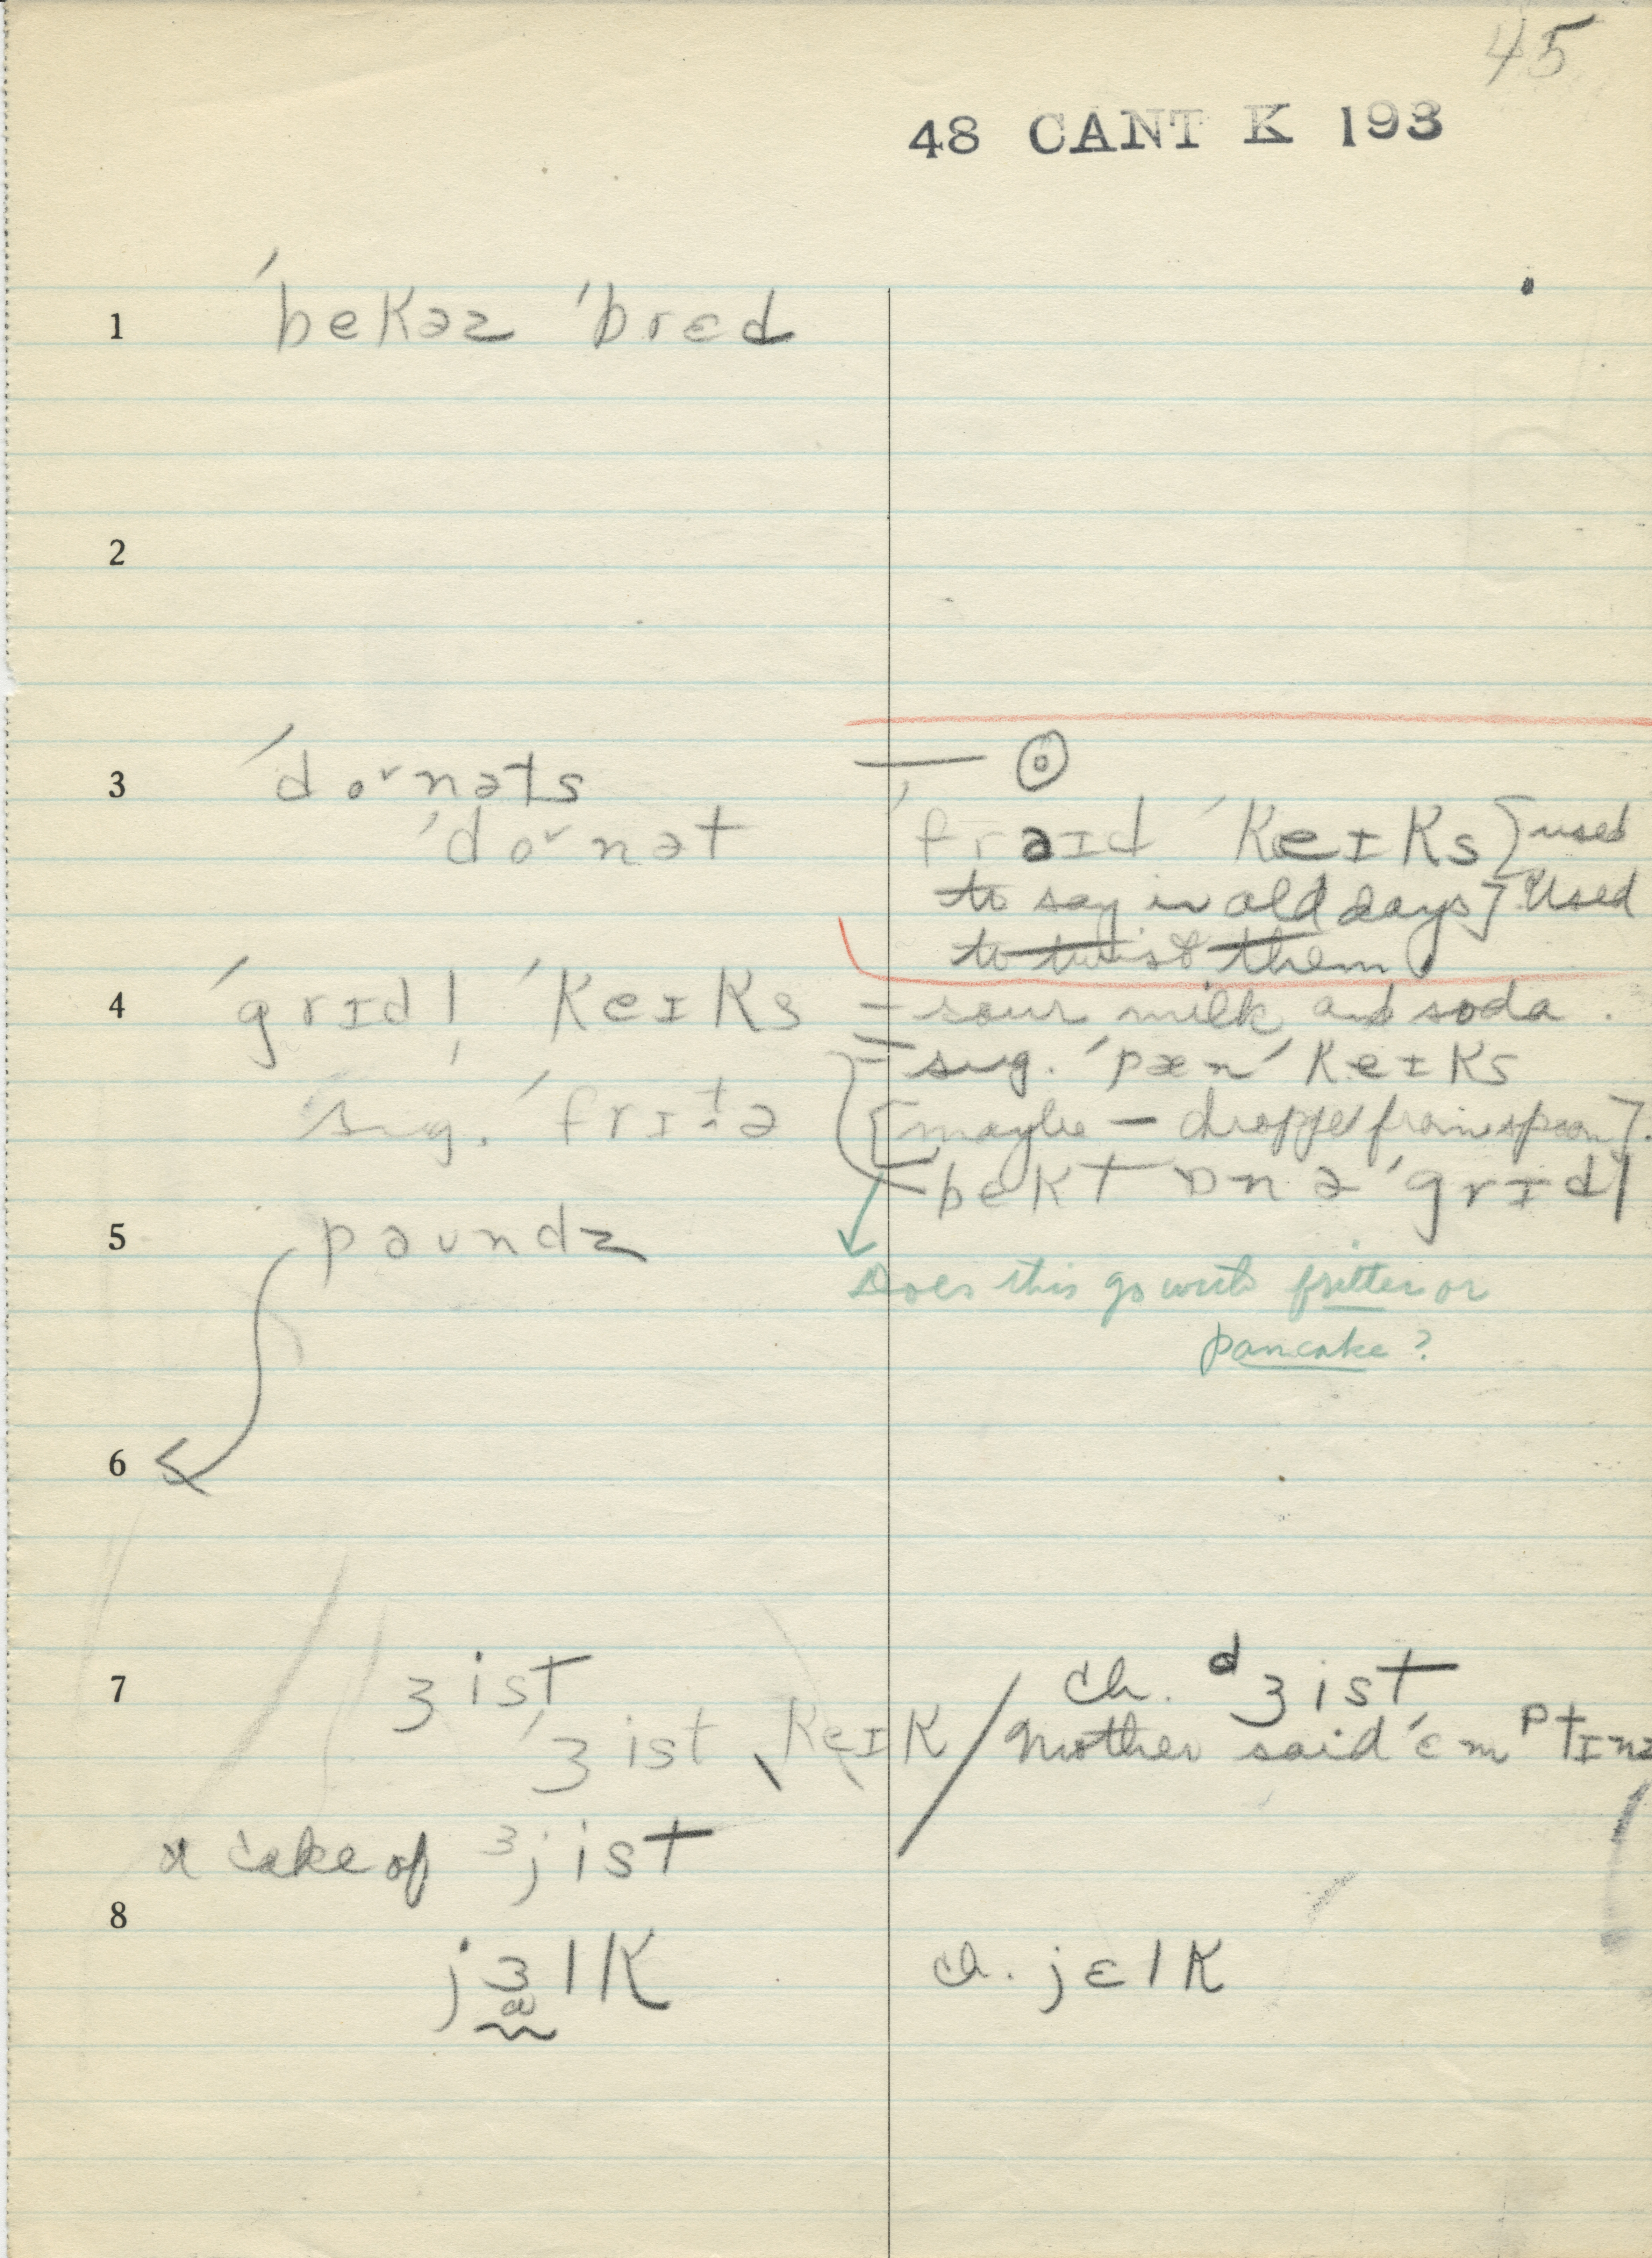 45
48 CANT K 193
1 ˈbekəz ˈbrɛd
2
3 ˈdoˇnəts — ⊙
ˈdoˇnət ˈfraɪd ˈkeɪks [used
to say in old days] Used
to twist them
4 ˈgrɪdl̩ ˈkeɪks = sour milk and soda.
= sug. ˈpænˈkeɪks
sug. ˈfrɪt̬ə [maybe — dropped from spoon].
bekt ɒn ə ˈgrɪdl
5 paundz
Does this go with fritter or
pancake?
6
7 ʒist ch. ᵈʒist
ˈʒist ˌkeɪk / Mother said ˈɛmᵖtɪnz
a cake of ᶾjist
8
jɜlk ch. jɛlk
a